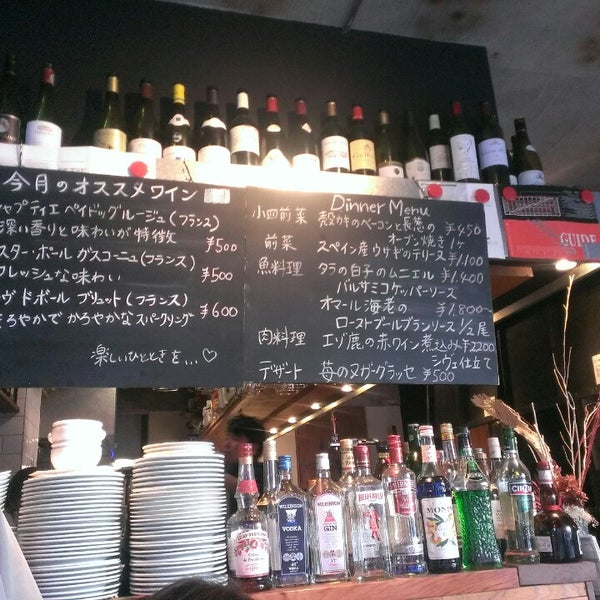 今月のオススメワイン
ャプティエ ペイドッグルージュ(フランス)
深い香りと味わいが特徴
¥500
スター・ボール ガスコーニュ(フランス)
フレッシュな味わい
¥500
ヴド ボール ブリュット(フランス)
¥600
ろやかで かろやかなスパークリング
楽しいひとときを...♡
Dinner Menu
小皿前菜 殻カキのベーコンと長葱の
オーブン焼き 1ヶ ¥450
前菜 スペイン産ウサギのテリーヌ ¥1,100
魚料理 タラの白子のムニエル ¥1,400
バルサミコケッパーソース
オマール海老の ¥1,800〜
ローストブールブランソース 1/2尾
肉料理 エゾ鹿の赤ワイン煮込み ¥2200
シヴェ仕立て
デザート 苺のヌガーグラッセ ¥500
GUIDE
WILKINSON
VODKA
WILKINSON
GIN
BEEFEATER
MONIN
CINZANO